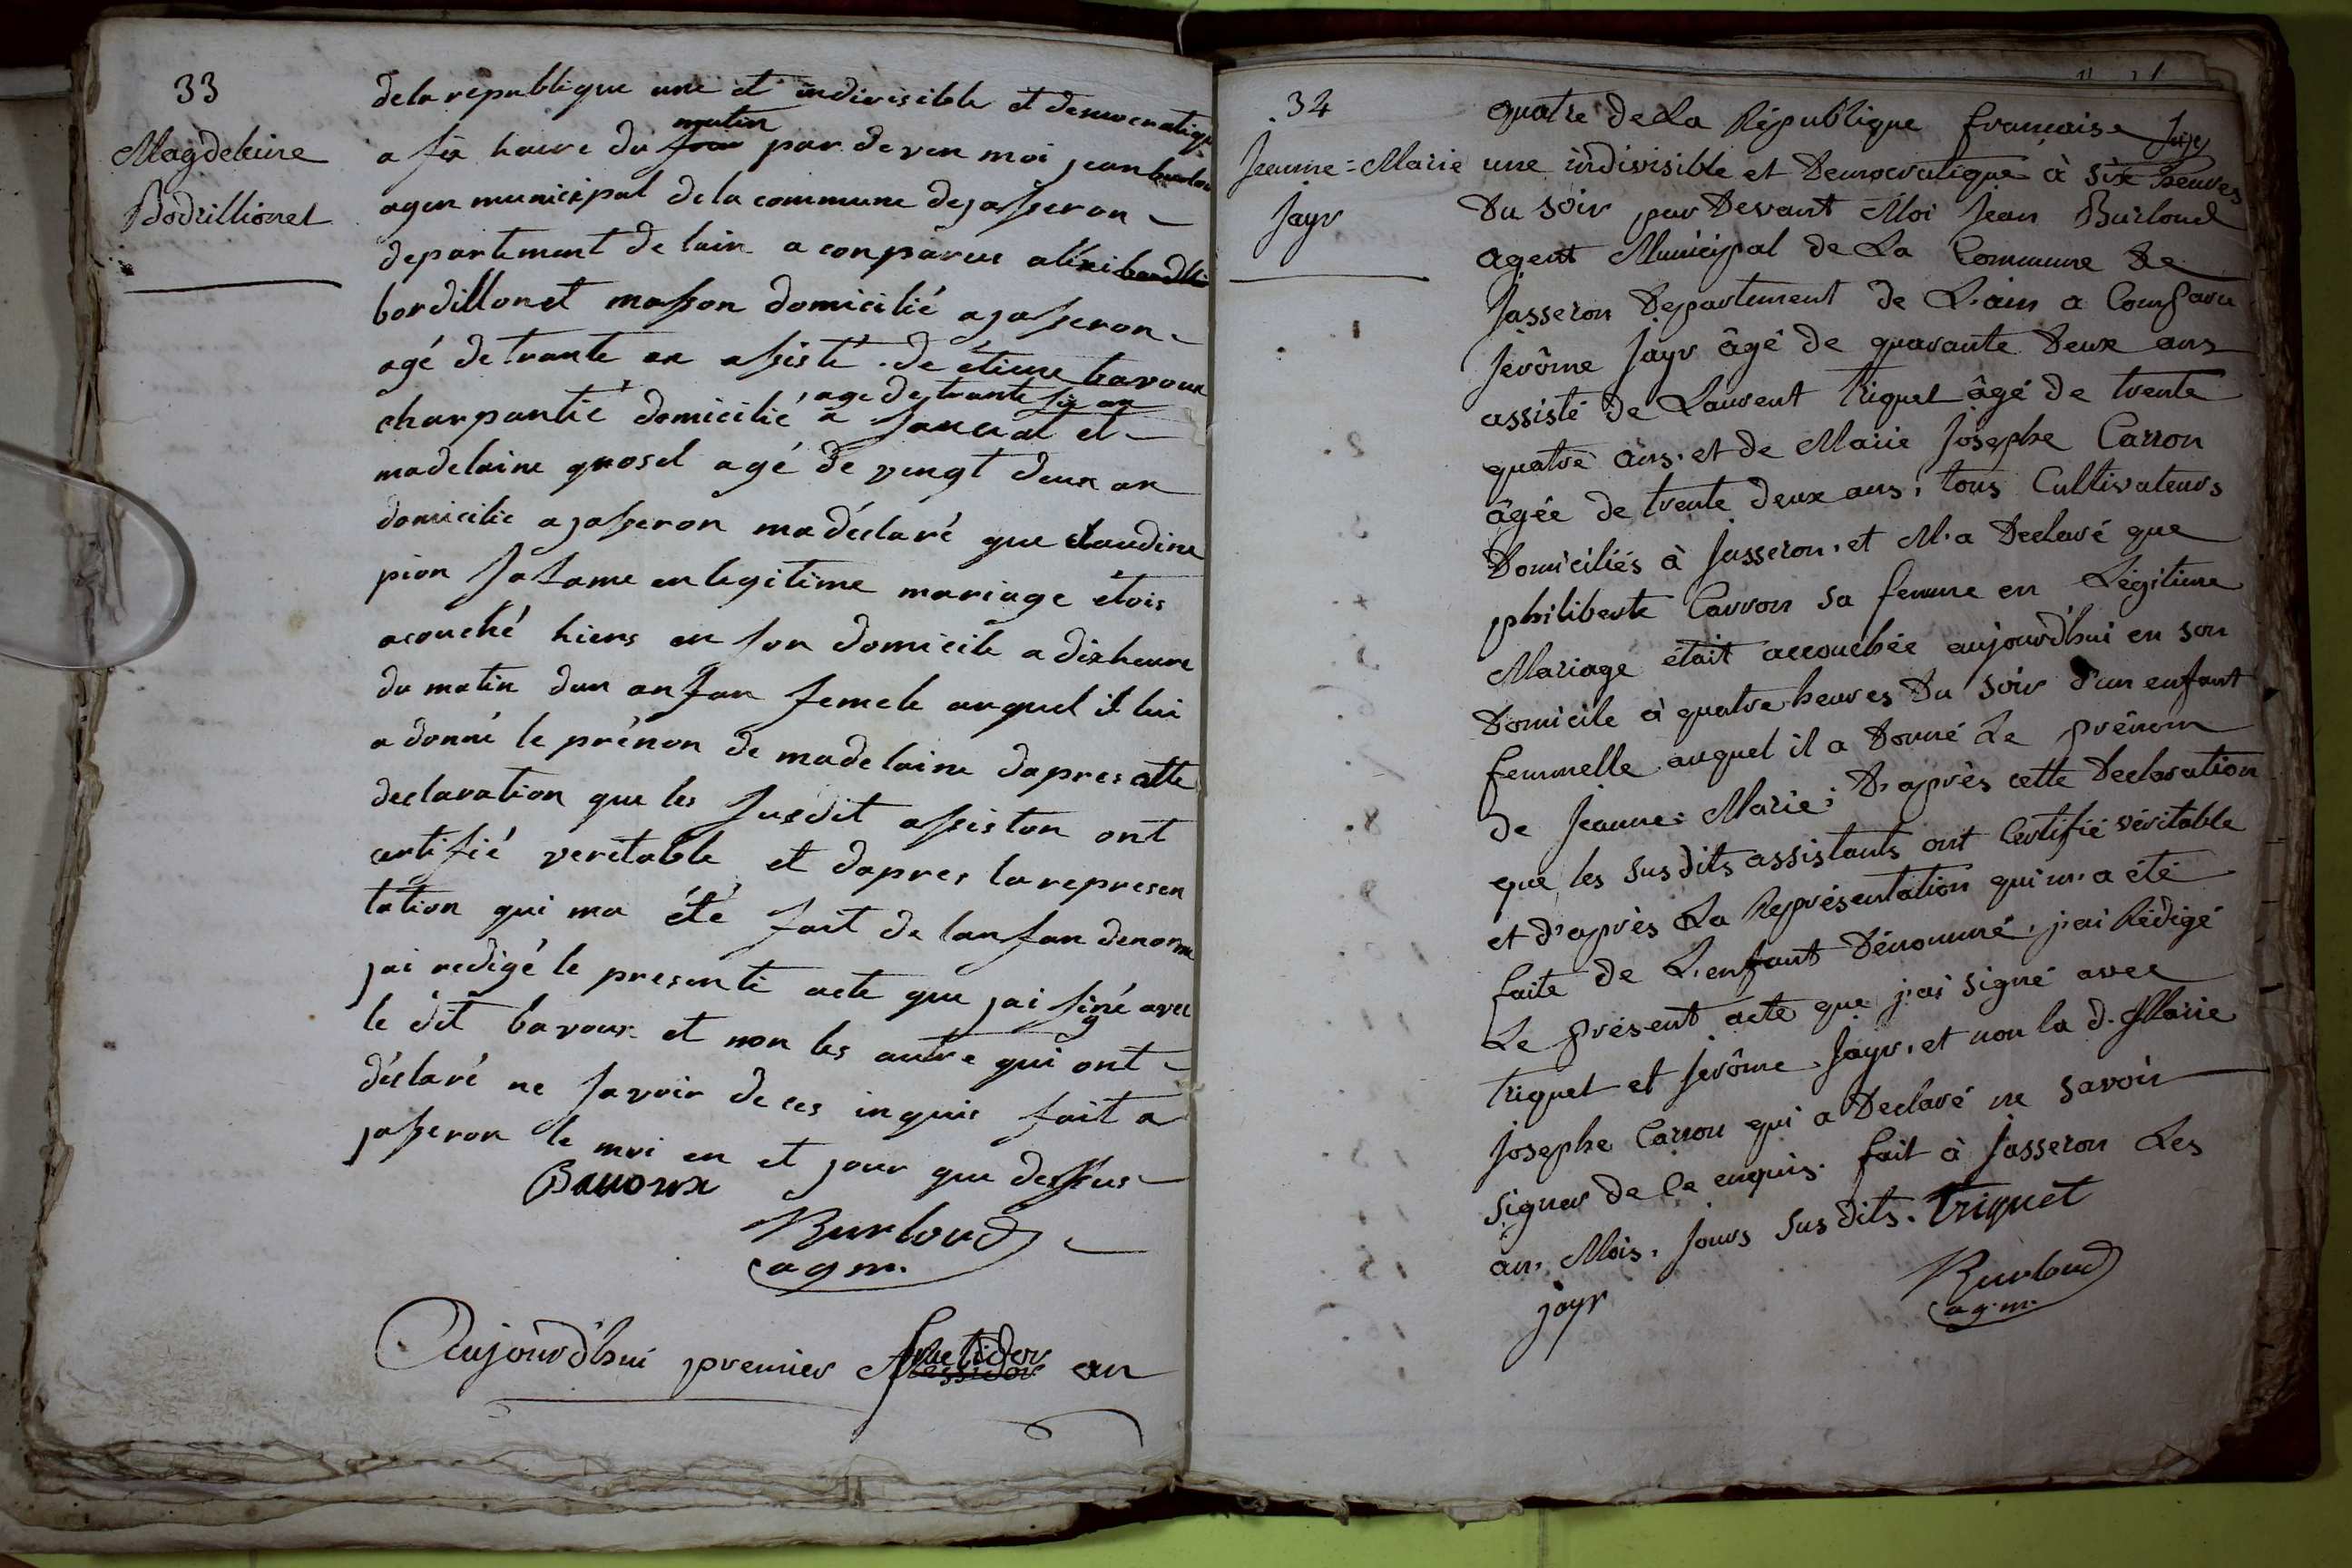 33
Magdeleine
Bodrillionet
dela république une et indivisible et democratiqe
a six heure du soir matin par deven moi jean burlou
agen municipal de la commune de jasseron
departement de lain a conparus alexi bordilli
bordillonet masson domicilié a jasseron
agé de trante an assisté de étiene bavoux
charpantié domicilié a sanciat et
, age de trante six an
madelaine grosel agé de vengt deux an
domicilie a jasseron ma déclaré que claudine
pion sa fame en legitime mariage étois
acouché hiers en son domicile a dix heure
du matin dun anfan femele auquel il lui
a donné le prénon de madelaine dapres cette
declaration que les susdit assistan ont
certifié veritable et dapres la represen
tation qui ma été fait de lanfan denome
jai redigé le presente acte que jai siné avec
le dit bavoux et non les autre qui ont
déclaré ne savoir de ces inquis fait a
jasseron le moi en et jour que dessus
Bauoux
Burloud
agm.
Aujourd'hui premier Messidor fructidor an
34
Jeanne=Marie
Jayr
quatre de La République francaise
une indivisible et Democratique à six heures
Du soir par Devant Moi Jean Burloud
agent Municipal de La Commune De
Jasseron Departement de L'ain a Comparu
Jerôme Jayr âgé de quarante Deux ans
assisté de Laurent Triquet âgé de trente
quatre ans, et de Marie Josephe Carron
âgée de trente deux ans, tous Cultivateurs
Domiciliés à Jasseron, et M'a Declaré que
philiberte Carron sa femme en Légitime
Mariage était accouchée aujourd'hui en son
Domicile à quatre heures Du Soir d'un enfant
femmelle auquel il a Donné Le prénom
de Jeanne=Marie; D'après cette Declaration
que les susdits assistants ont Certifié véritable
et d'après La Représentation qui m'a été
faite de L'enfant Dénommé, j'ai Rédigé
Le présent acte que j'ai signé avec
Triquet et Jerôme Jayr, et non la d. Marie
Josephe Carron qui a Declaré ne savoir
signer de Ce enquis. fait à Jasseron Les
an, Mois, Jours susdits. Triquet
jayr
Burloud
ag.m.